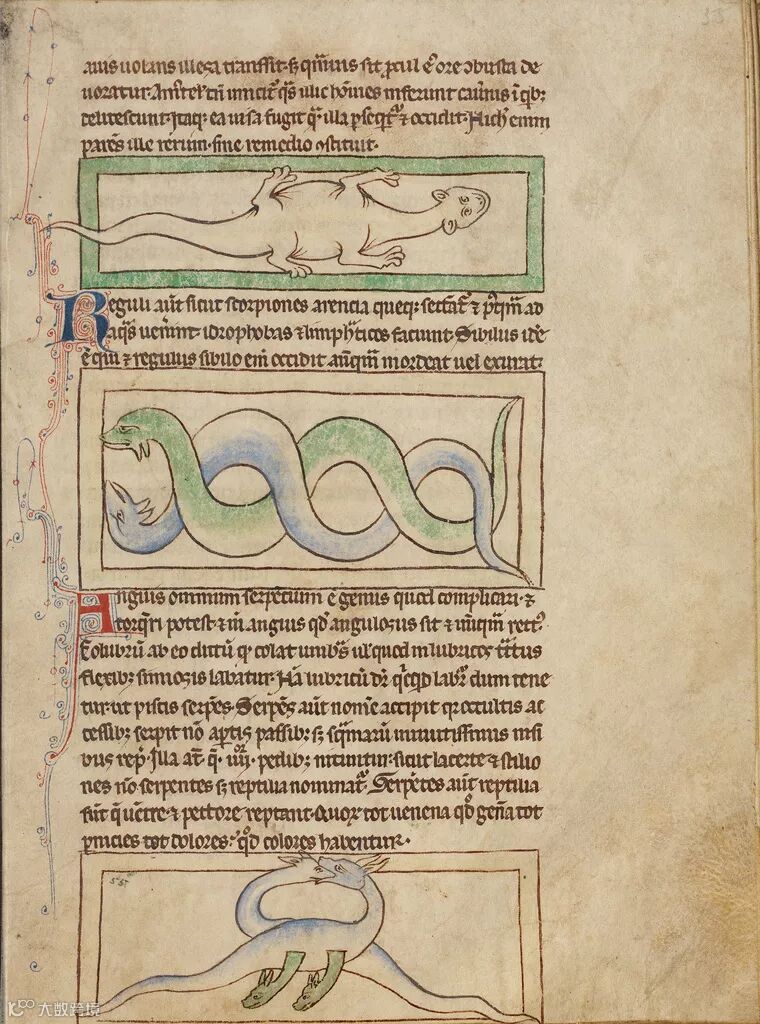 auis uolans illesa transit. sꝫ qͣmuis sit ꝓcul ē ore ɔbusta de
uoratur. A mustel' tn̄ uincit͛ qͣs illic hōines inferunt cauīnis ī qͥbꝫ
delitescunt. Itaqꝫ ea uisa fugit qͣ illa ꝑseqͥt͛ ⁊ occidit. Nich̅ enim
parens ille rerum. sine remedio ɔstituit.
Reguli aut̄ sicut scorpiones arencia queqꝫ sectant͛ ⁊ postqͣm ad
aqͣs uenerint idrophobas ⁊ limphaticos faciunt. Sibilus idē
ē qui ⁊ regulus sibilo enī occidit anteqͣm mordeat uel exurat.
Anguis omnium serpentium ē genus quod complicari. ⁊
torqueri potest ⁊ in̄ anguis qd̓ angulosus sit ⁊ nunqͣm rectꝰ.
Colubrū ab eo dictū qꝫ colat umbͣs ul' quod in lubricos tͣctus
flexibꝫ sinuosis labatur. Nā lubricū dr̄ qͥcqͥd labit͛ dum tene
tur. ut piscis serpēs. Serpēs aut̄ nomē accipit qꝛ occultis ac
cessibꝫ serpit nō aꝑtis passibꝫ sꝫ sqͣmarū minutissimis nisi
bus rep̄. Illa at̄ qͤ .iiiiᵒʳ. pedibꝫ nitunt͛. sicut lacerte ⁊ stilio
nes nō serpentes sꝫ reptilia nominant͛. Serpētes aut̄ reptilia
sūt qͥ uentre. ⁊ pectore reptant. Quoꝝ tot uenena qͦt gen̄a tot
ꝑnicies tot dolores. qͦt colores habentur.
55
K100 大数跨境